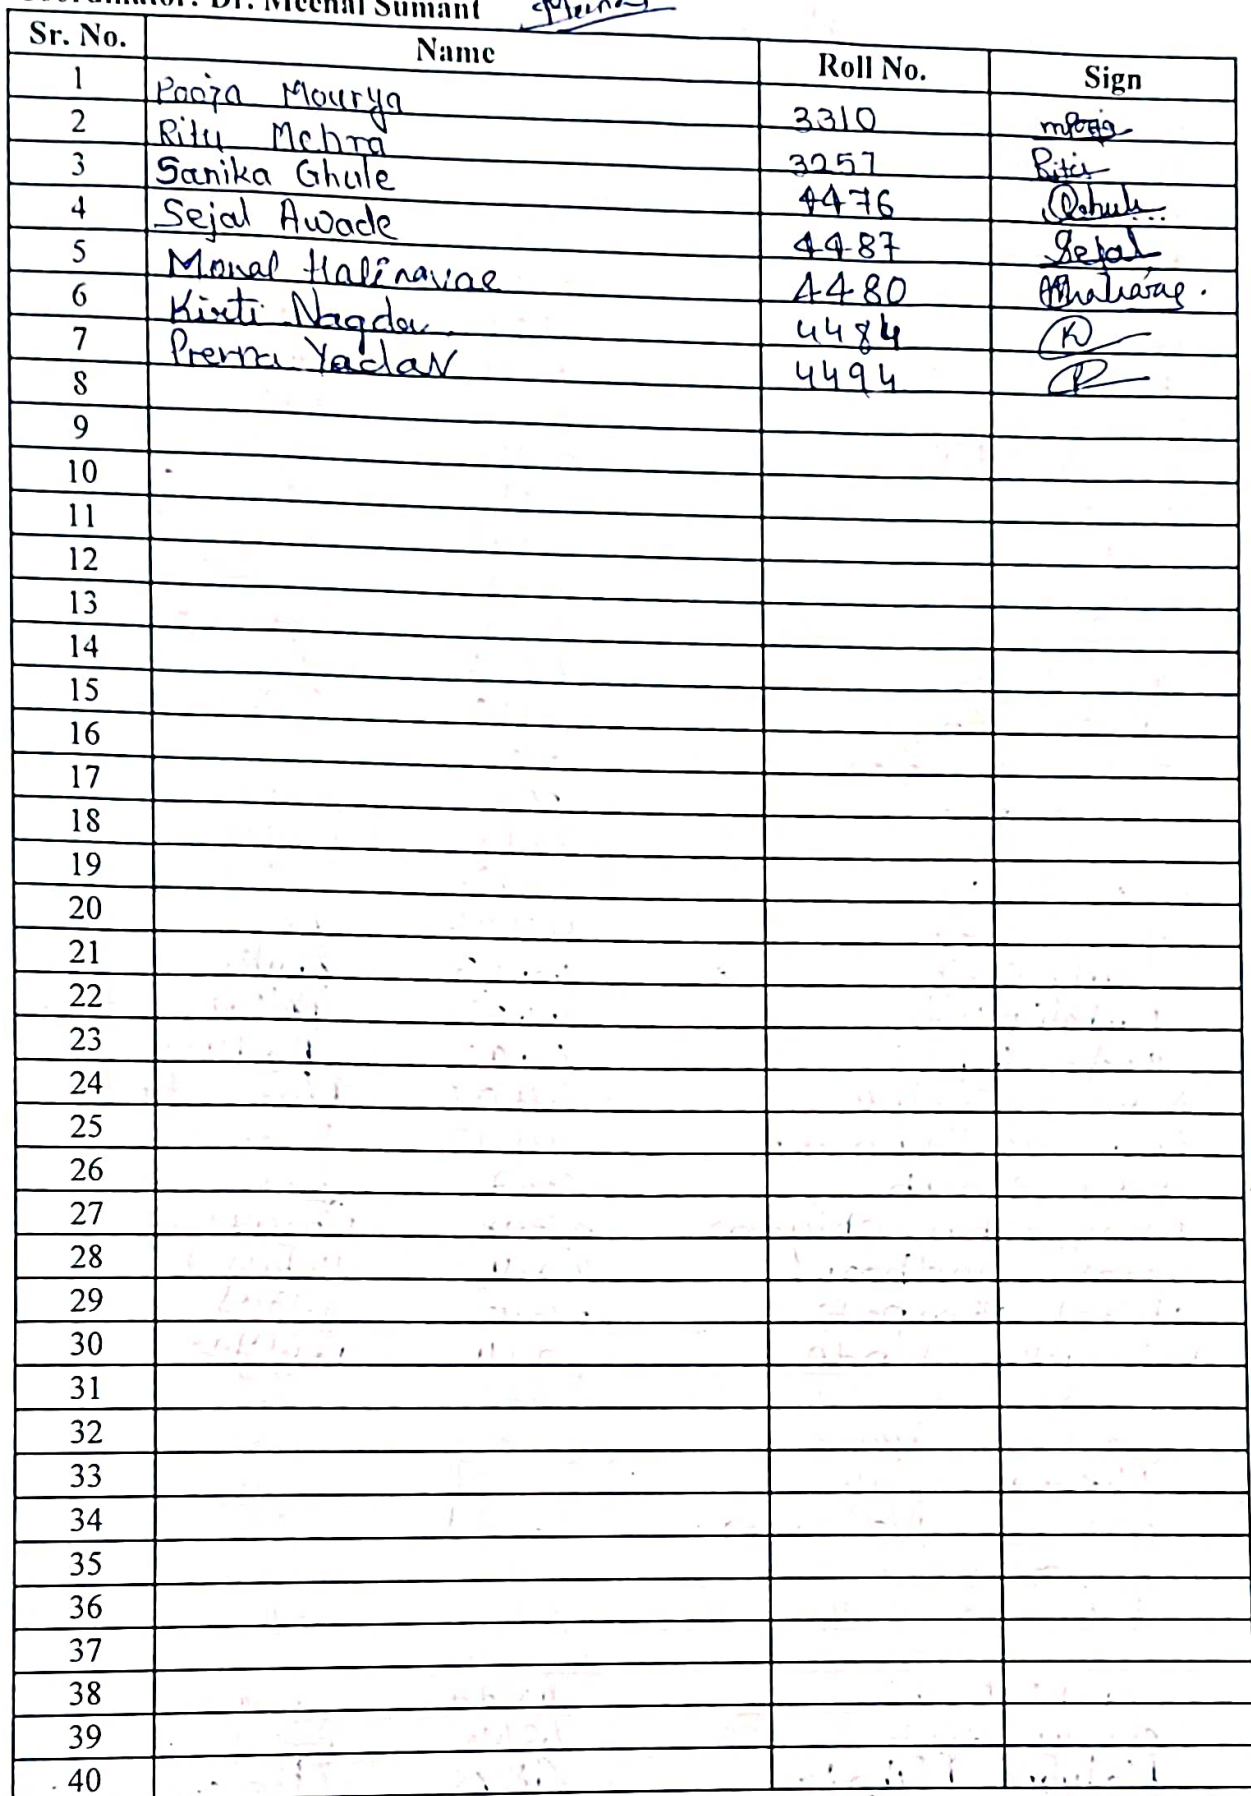 Coordinator: Dr. Meenal Sumant
Sr. No. Name Roll No. Sign
1 Pooja Mourya 3310 mpooja
2 Ritu Mehra 3257 Ritu
3 Sanika Ghule 4476
4 Sejal Awade 4487 Sejal
5 Monal 4480
6 Kirti Nagda 4484 K
7 Prerna Yadav 4494 P
8
9
10
11
12
13
14
15
16
17
18
19
20
21
22
23
24
25
26
27
28
29
30
31
32
33
34
35
36
37
38
39
40